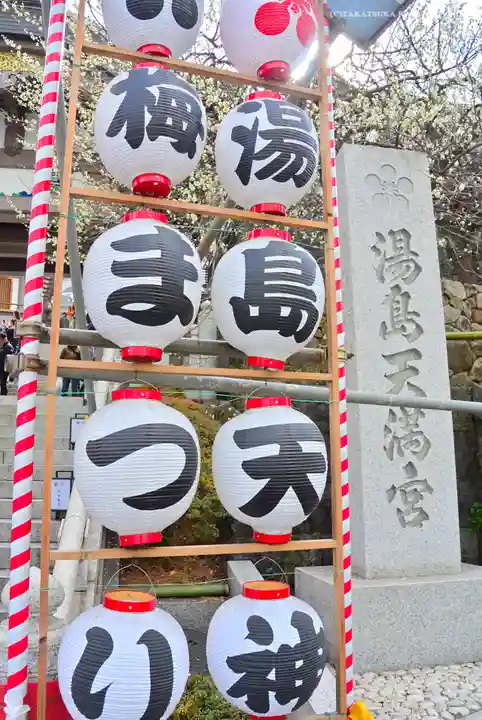 湯島天神
梅まつり
湯島天満宮